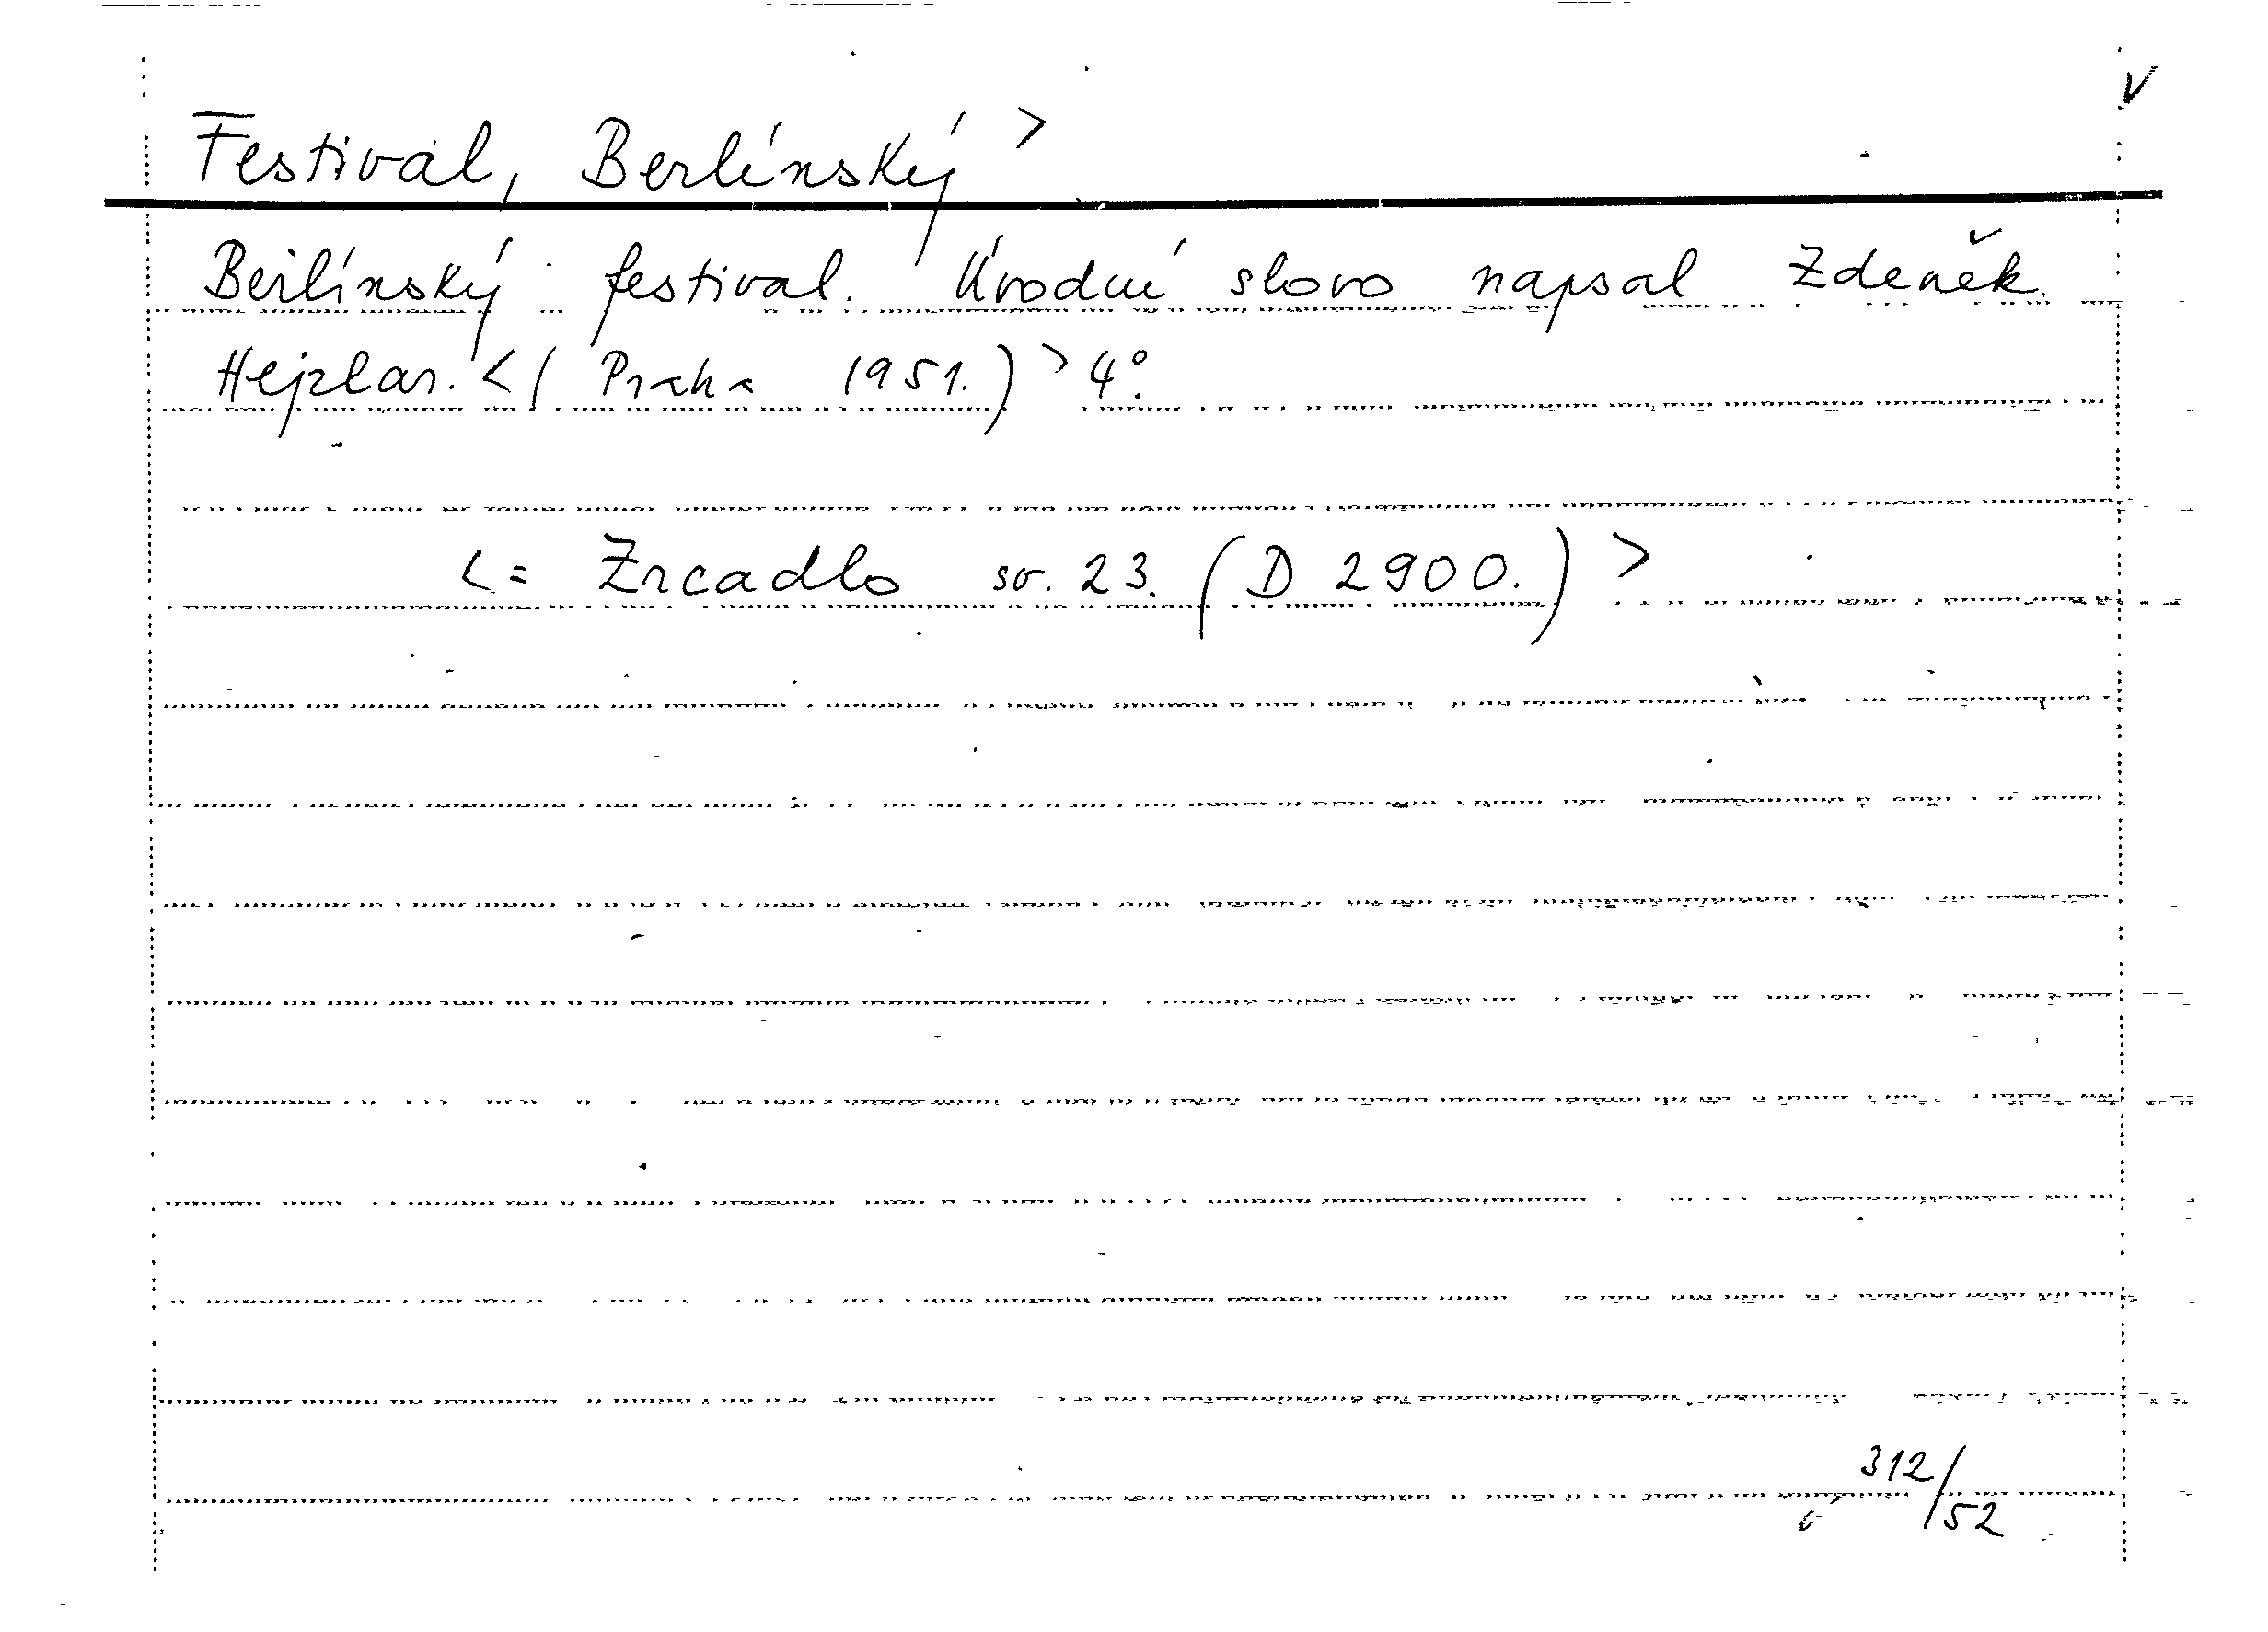 v
Festival, Berlínský >
Berlínský festival. Úvodní slovo napsal Zdeněk
Hejzlar. < ( Praha 1951. ) > 4°.
< = Zrcadlo sv. 23. ( D 2900. ) >
312/52